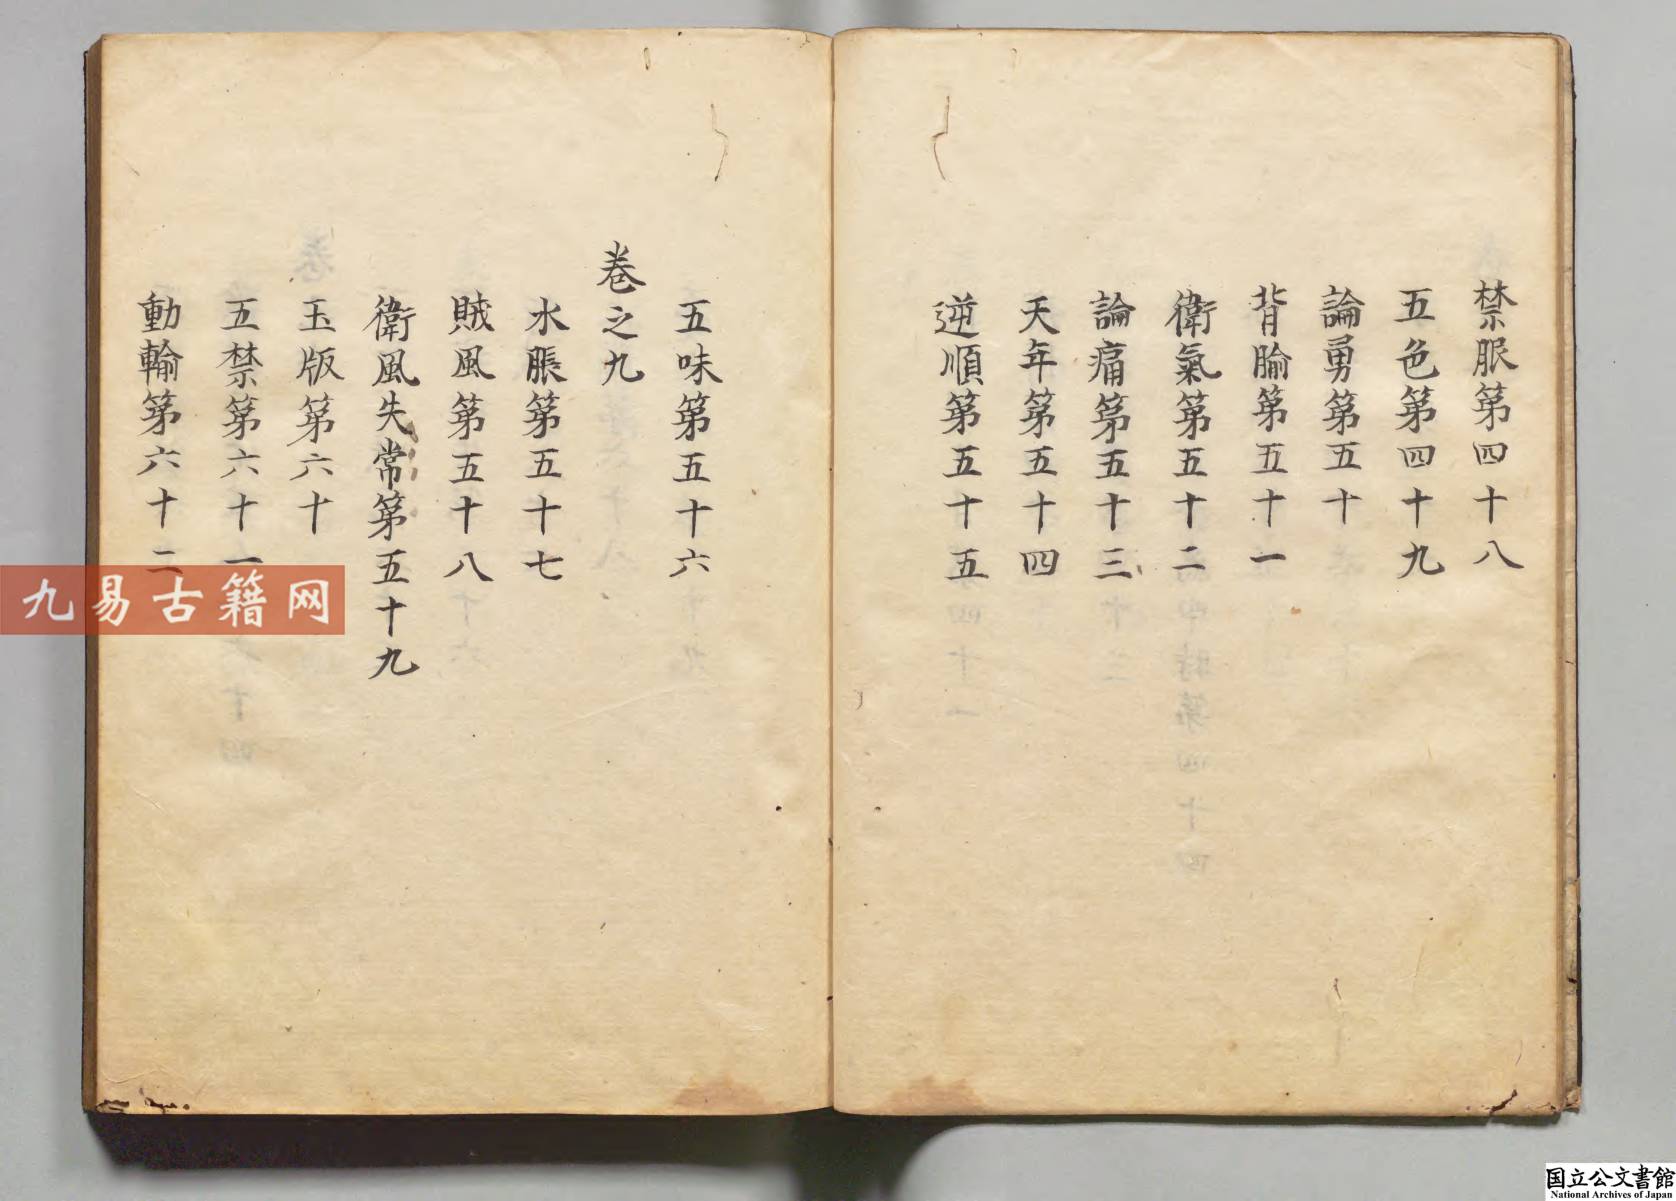 禁脤第四十八
五色第四十九
論勇第五十
背腧第五十一
衛氣第五十二
論痛第五十三
天年第五十四
逆順第五十五
五味第五十六
卷之九
水脹第五十七
賊風第五十八
衛風失常第五十九
玉版第六十
五禁第六十一
動輸第六十二
九易古籍网
国立公文書館
National Archives of Japan